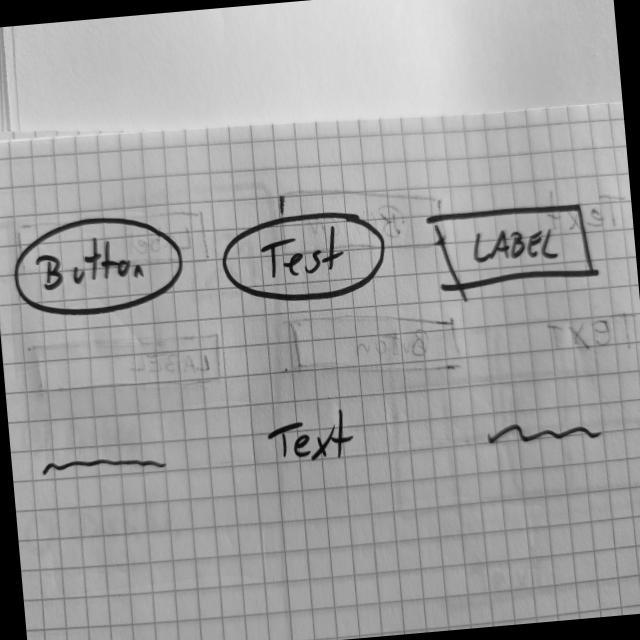 Button Test LABEL
Text